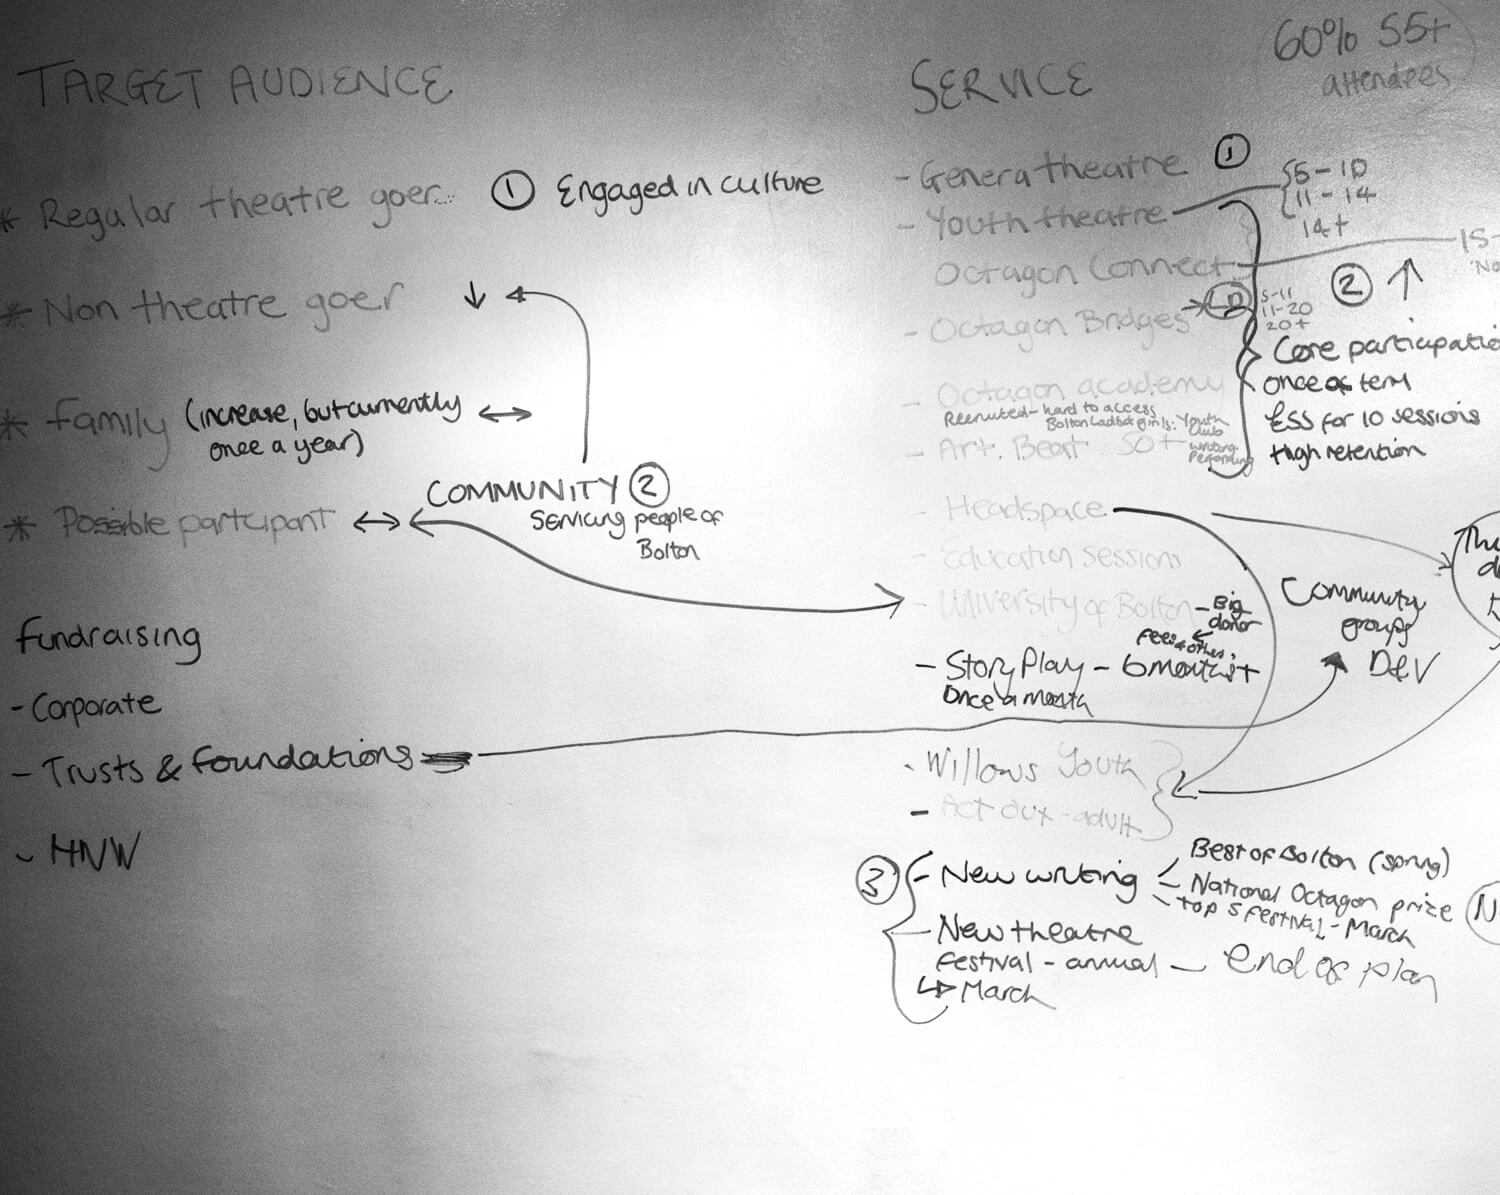 TARGET AUDIENCE
* Regular theatre goer... ① Engaged in culture
* Non theatre goer ↓
* Family (increase, but currently
once a year)
COMMUNITY ②
Servicing people of
Bolton
* Possible participant
Fundraising
- Corporate
- Trusts & foundations
- HNW
60% 55+
attendees
SERVICE
- Genera theatre ①
- Youth theatre
5-10
11-14
14+
Octagon Connect
15-
- Octagon Bridges
LD
5-11
11-20
20+
② ↑
Core participatio
once a term
£55 for 10 sessions
High retention
- Octagon academy
Recruited - hard to access
Bolton Lads & girls. Youth
Club
- Art. Beat 50+
writing.
Performing
- Headspace
- Education sessions
- University of Bolton - Big
donor
Fees & other.
- Story Play - 6 months +
Once a month
Community
groups
D&V
- Willows Youth
- Act out - adult
③
- New writing
Best of Bolton (spring)
- National Octagon prize
- Top 5 festival - March
- New theatre
Festival - annual - end of plan
↳ March